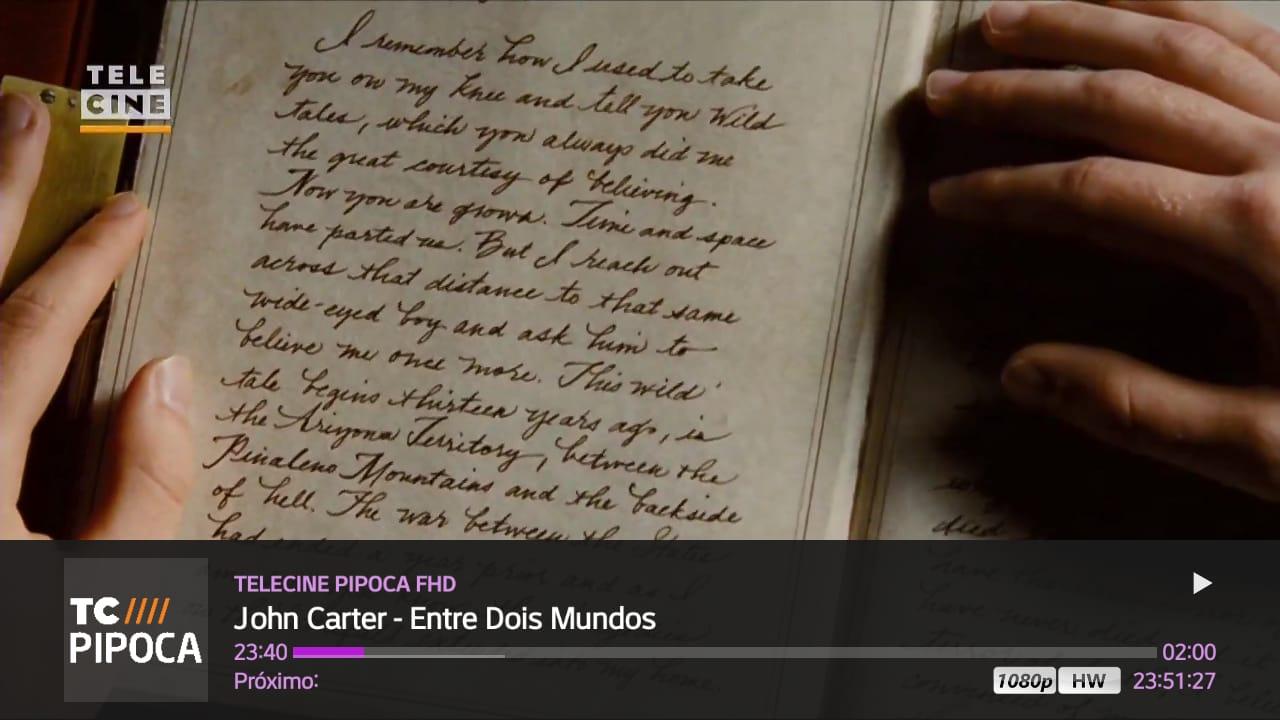 I remember how I used to take
you on my knee and tell you Wild
tales, which you always did me
the great courtesy of believing.
Now you are grown. Time and space
have parted us. But I reach out
across that distance to that same
wide-eyed boy and ask him to
believe me once more. This wild
tale begins thirteen years ago, in
the Arizona Territory, between the
Pinaleno Mountains and the backside
of hell. The war between the States
had ended a year prior and as I
into my home.
died
TELE
CINE
TC////
PIPOCA
TELECINE PIPOCA FHD
John Carter - Entre Dois Mundos
23:40
02:00
Próximo:
1080p
HW
23:51:27